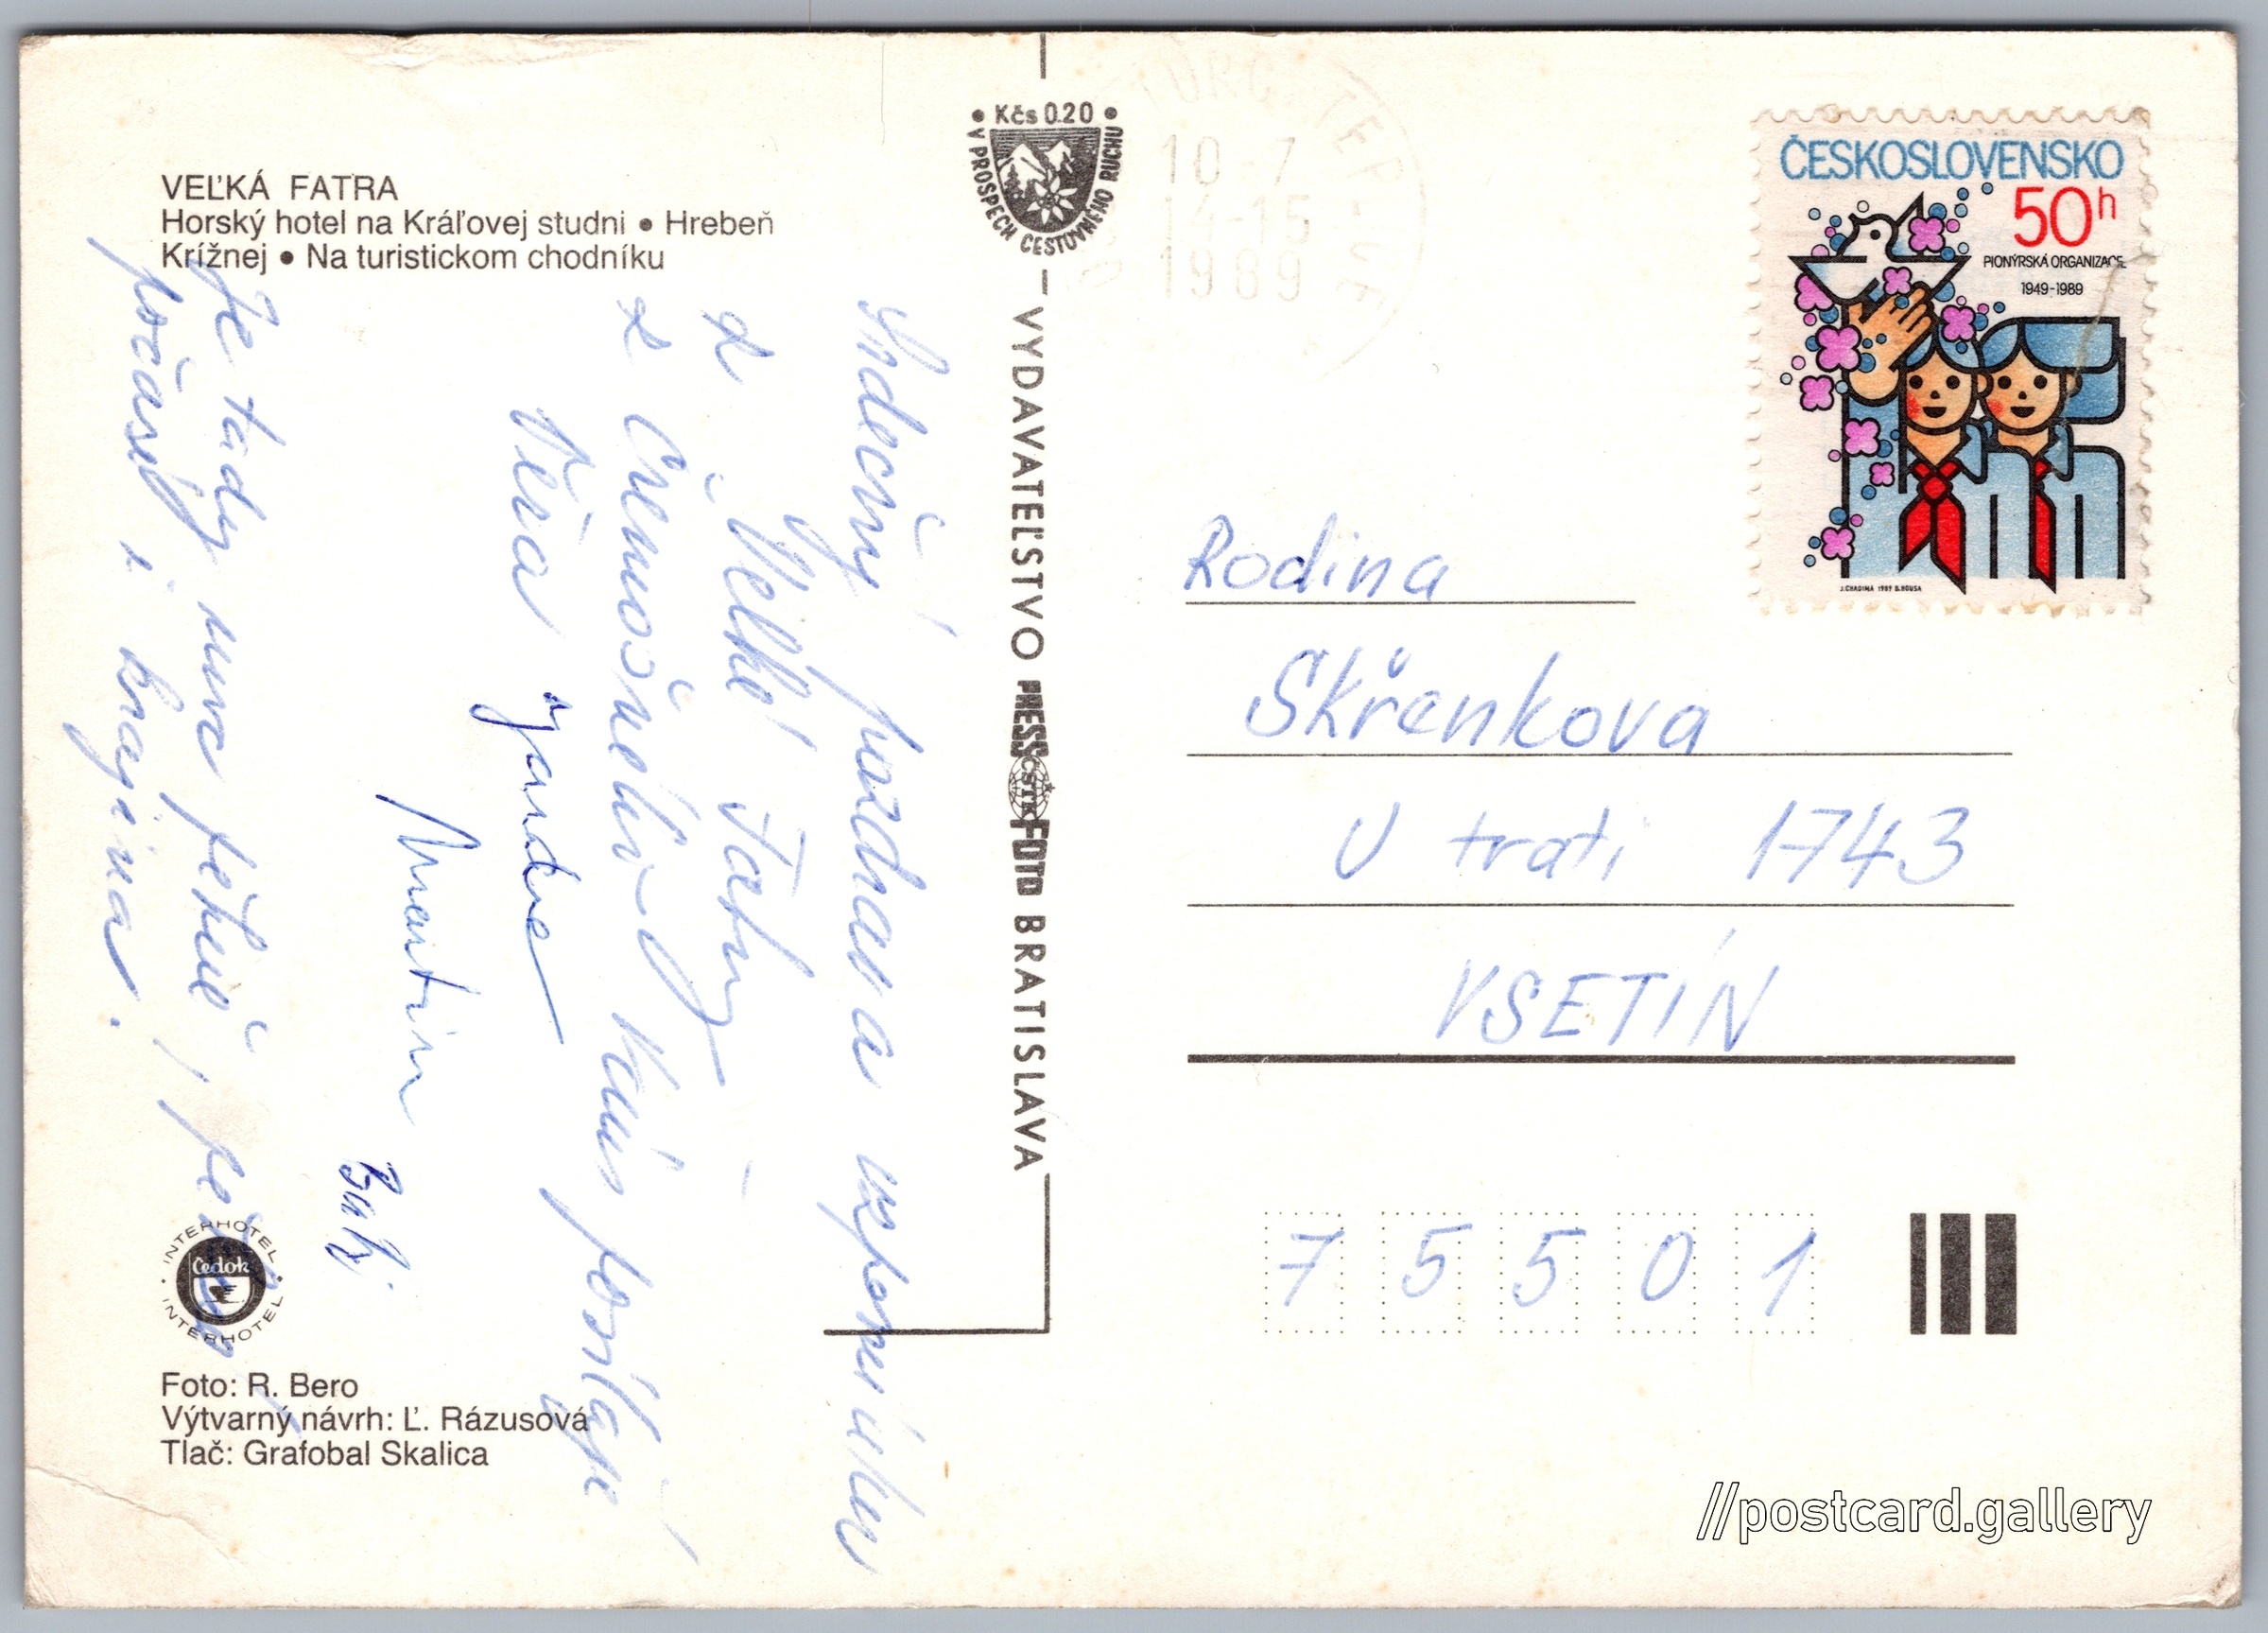 VEĽKÁ FATRA
Horský hotel na Kráľovej studni • Hrebeň
Krížnej • Na turistickom chodníku
Srdečný pozdrav a vzpomínku
z Velké Fatry
z Čremošného Vám posílají
Věra Jarka
Martin
Je tady moc pěkně, pěkné
počasí i krajina.
INTERHOTEL
Čedok
INTERHOTEL
Foto: R. Bero
Výtvarný návrh: Ľ. Rázusová
Tlač: Grafobal Skalica
• Kčs 0.20 •
V PROSPECH CESTOVNÉHO RUCHU
VYDAVATEĽSTVO PRESSFOTO BRATISLAVA
ČSTK
10-7
14-15
1989
ČESKOSLOVENSKO
50h
PIONÝRSKÁ ORGANIZACE
1949-1989
J.CHADIMA 1989 B.HOUSA
Rodina
Skřenkova
U trati 1743
VSETÍN
7 5 5 0 1
//postcard.gallery